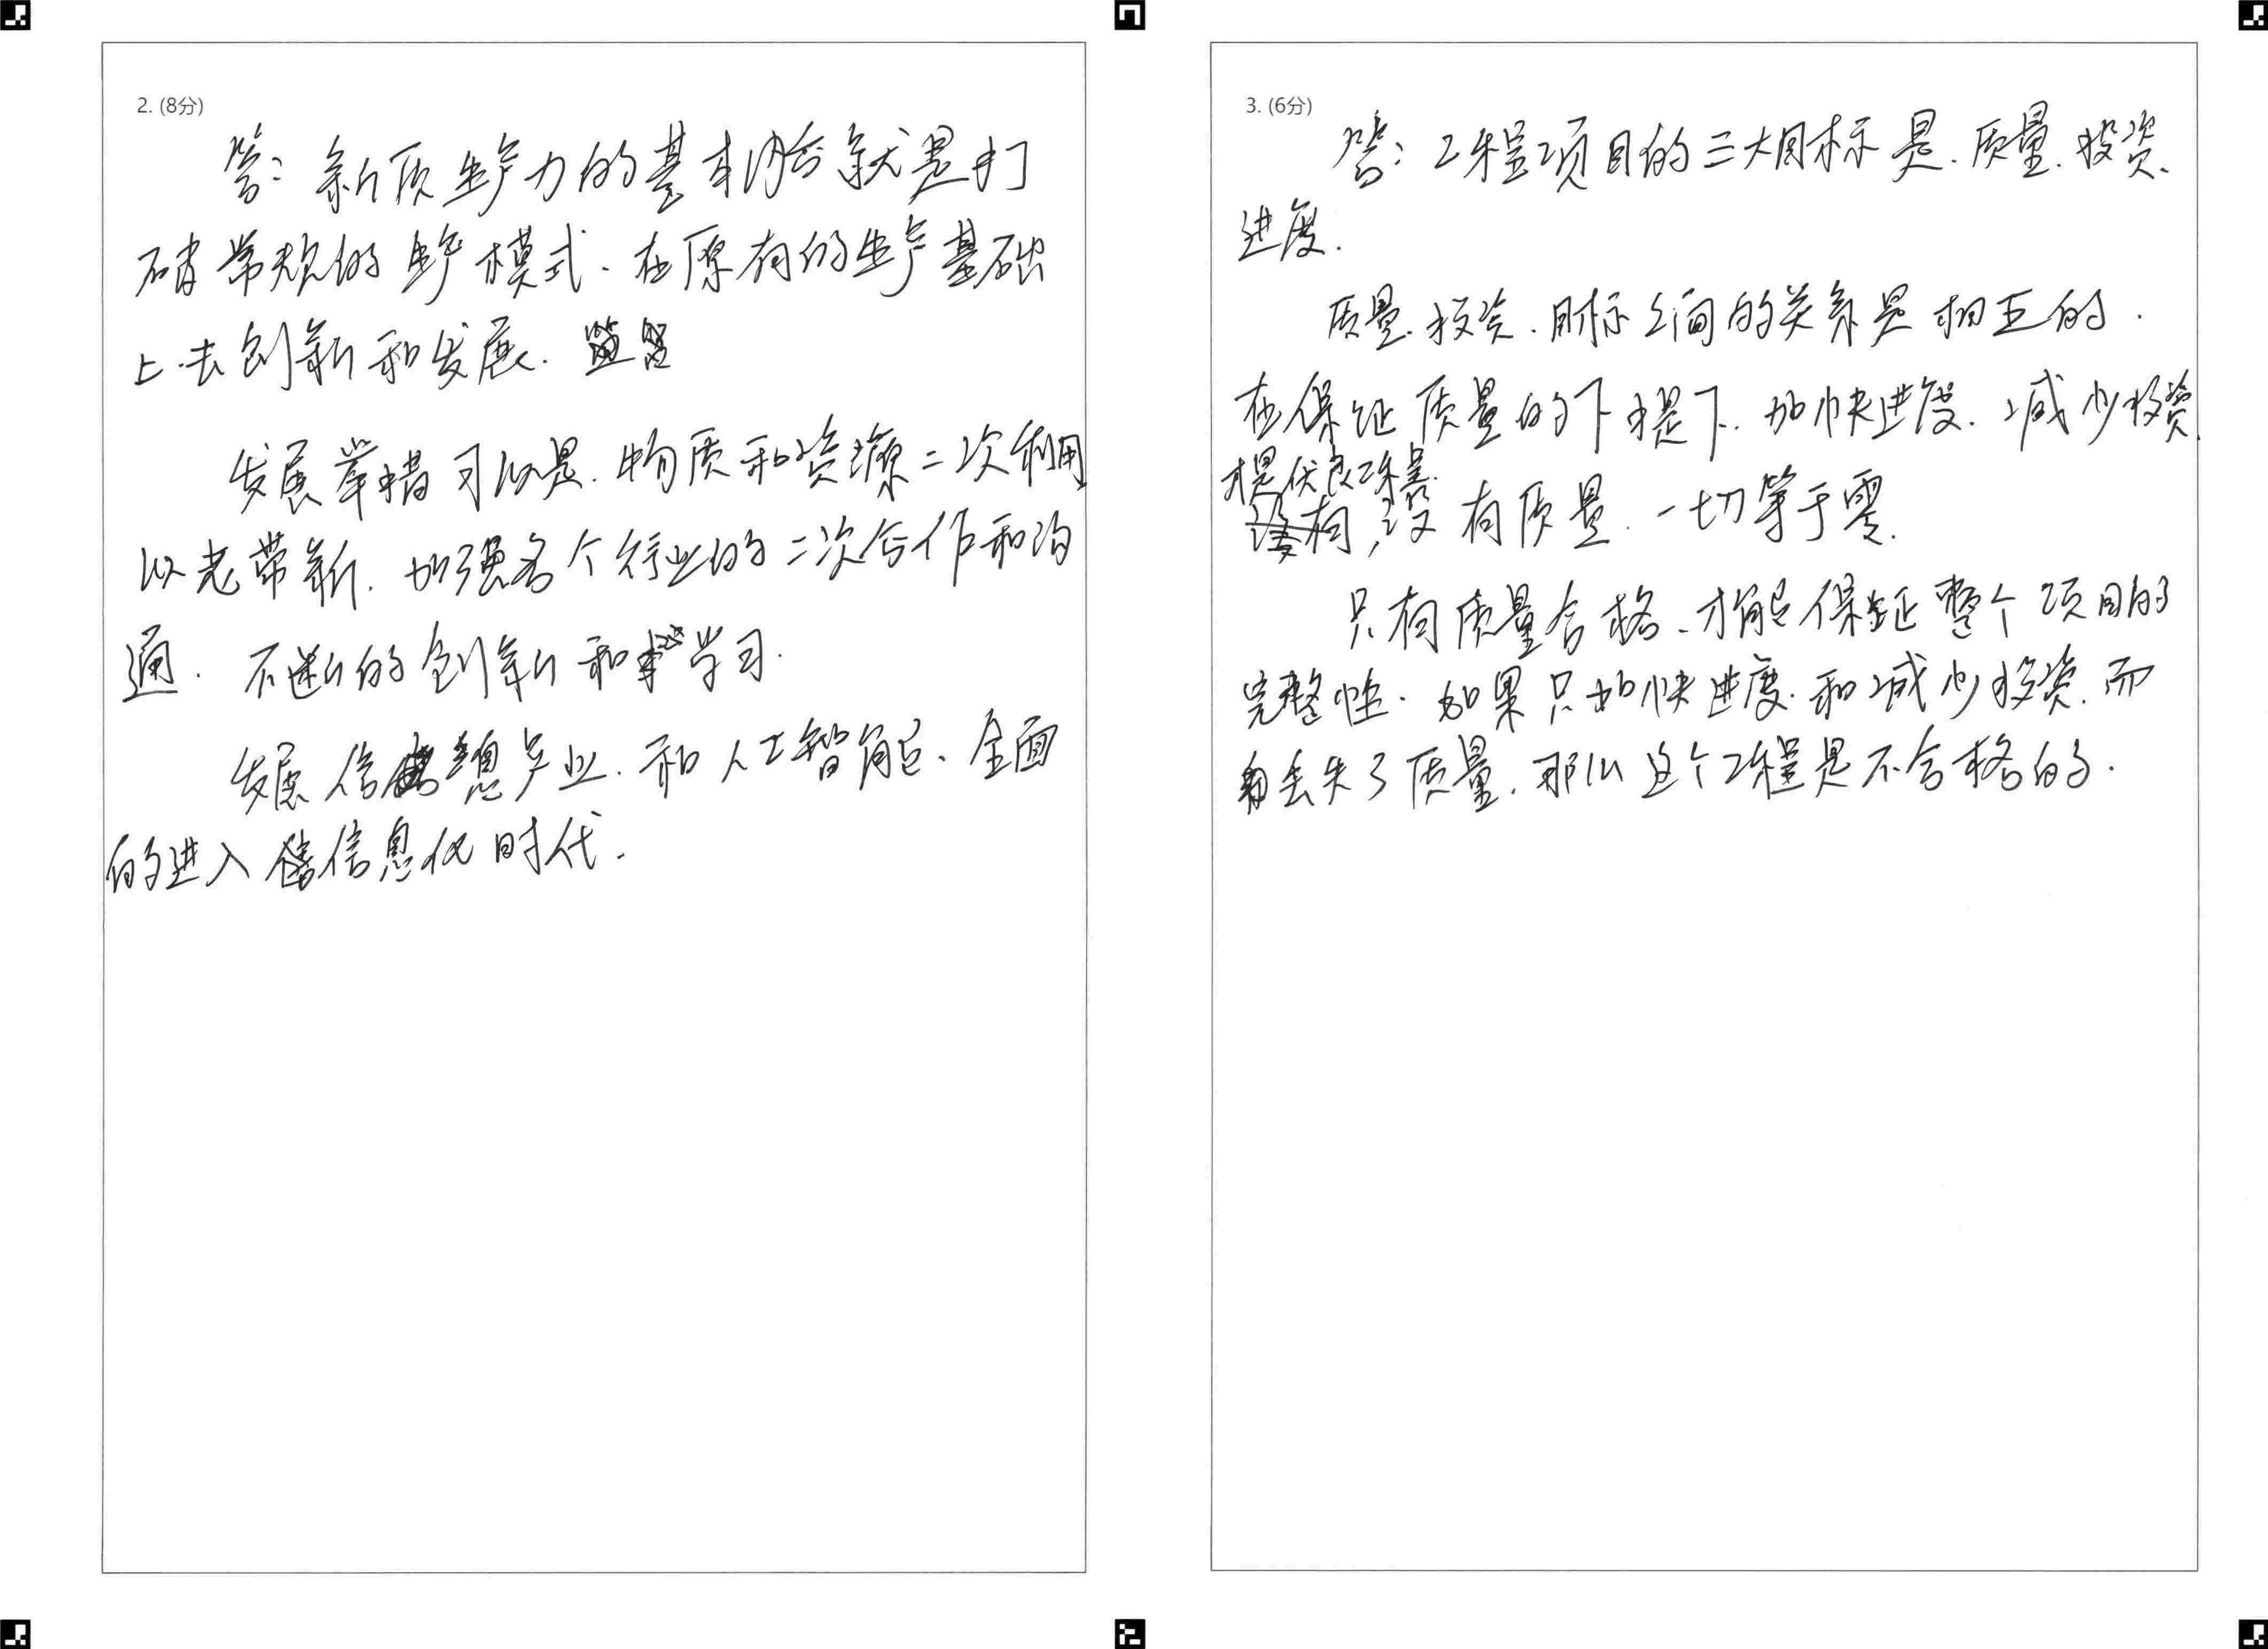 2. (8分)
答：新质生产力的基本内含就是打
破常规的生产模式.在原有的生产基础
上.去创新和发展.
发展举措可以是.物质和资源二次利用
以老带新.加强各个行业的二次合作和沟
通.不断的创新和学习.
发展信息产业.和人工智能、全面
的进入信息化时代.
3. (6分)
答：工程项目的三大目标是.质量.投资、
进度.
质量.投资.目标之间的关系是相互的.
在保证质量的下提下.加快进度.减少投资.
是优良工程.
没有质量.一切等于零.
只有质量合格.才能保证整个项目的
完整性.如果只加快进度.和减少投资.而
丢失了质量.那么这个工程是不合格的.